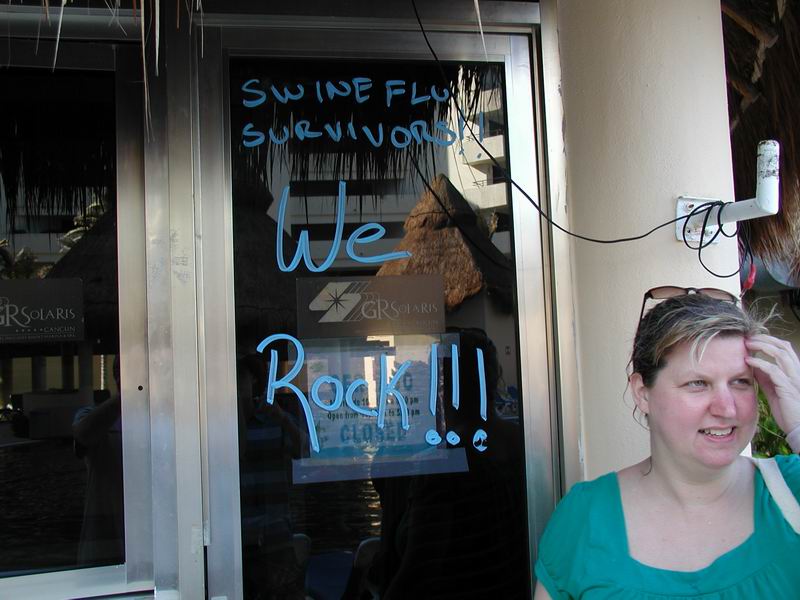 SWINE FLU
SURVIVORS!!
We
GR SOLARIS
GR SOLARIS
CANCUN
Rock!!!
Open from
CLOSED